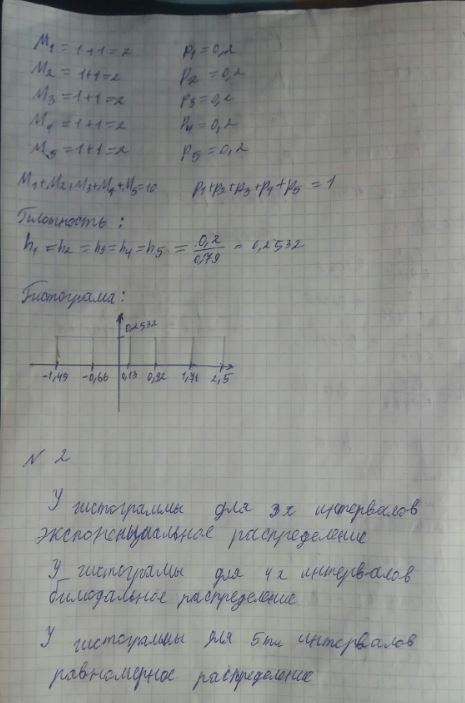 M₁ = 1+1=2 p₁=0,2
M₂ = 1+1=2 p₂=0,2
M₃ = 1+1=2 p₃=0,2
M₄ = 1+1=2 p₄=0,2
M₅ = 1+1=2 p₅=0,2
M₁+M₂+M₃+M₄+M₅=10 p₁+p₂+p₃+p₄+p₅ = 1
Плотность :
h₁ = h₂ = h₃ = h₄ = h₅ = 0,2/0,79 = 0,2532
Гистограма :
0,2532
-1,45 -0,66 0,13 0,92 1,71 2,5
N 2
У гистограммы для 3х интервалов
экспоненциальное распределение
У гистограмы для 4х интервалов
бимодальное распределение
У гистограммы для 5ти интервалов
равномерное распределение